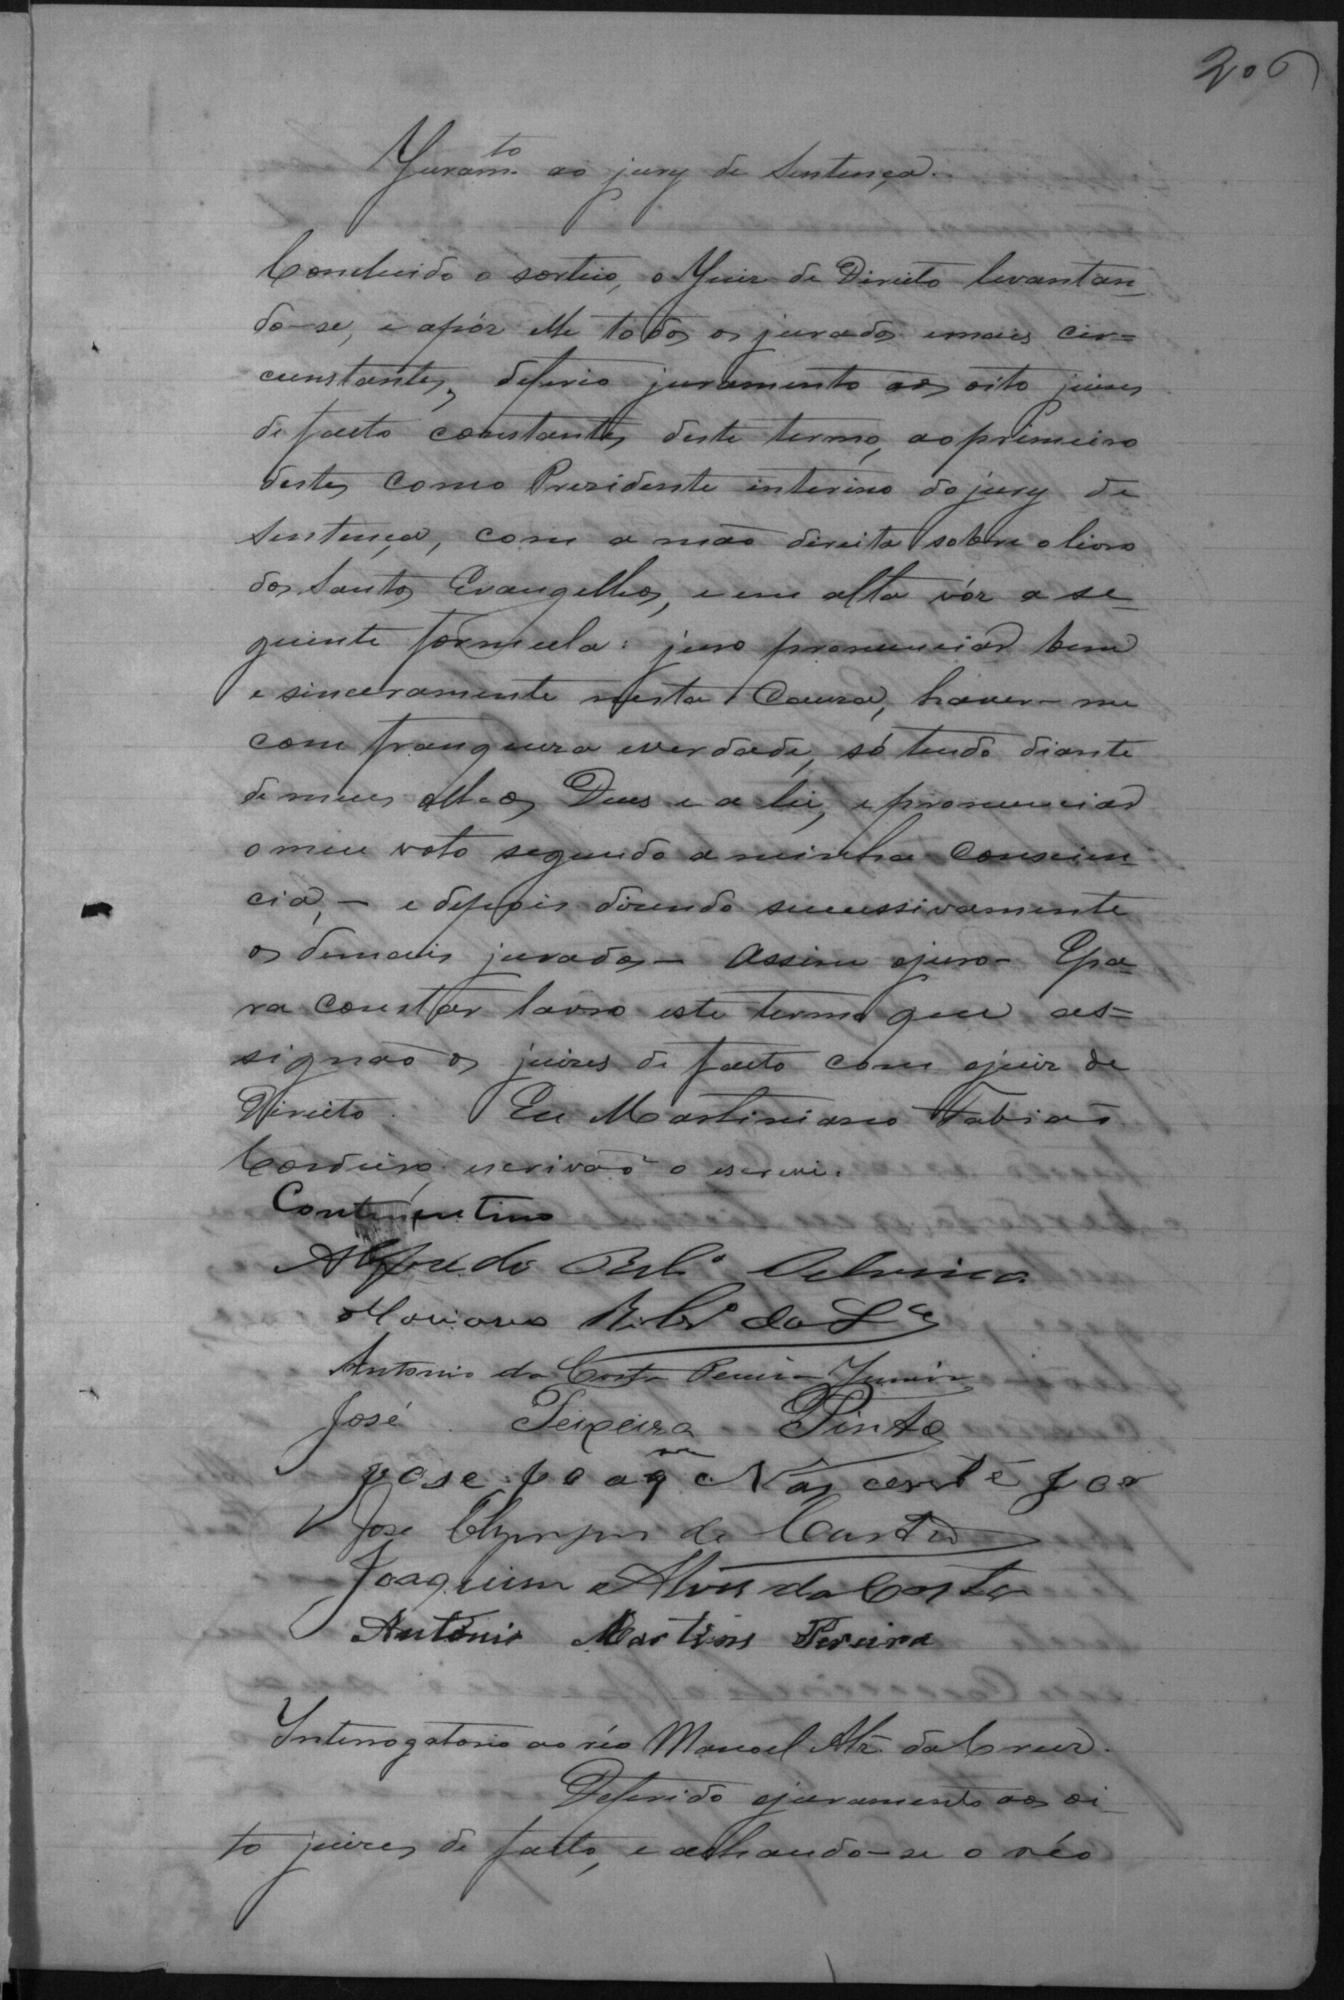 206
Juramto. ao jury de Sentença.
Concluido o sorteio, o Juiz de Direito levantan-
do-se, e apóz elle todos os jurados emais cir-
cunstantes, deferio juramento aos oito juizes
de facto constantes deste termo, ao primeiro
destes como Prezidente interino do jury de
Sentença, com a mão direita sobre o livro
dos Santos Evangelhos, e em alta vóz a se-
guinte formula: juro pronunciar bem
e sinceramente nesta Cauza, haver-me
com franqueza everdade, só tendo diante
de meus olhos Deus e a lei, e pronunciar
o meu voto segundo a minha Conscien-
cia, - e depois dizendo sucessivamente
os demais jurados - Assim ojuro - Epa-
ra constar lavro este termo que as-
signão os juizes de facto com ojuiz de
Direito. Eu Martiniano Fabião
Cordeiro, escrivão o escrevi.
Contimentino
Alfredo Ribro
Mariano Ribro da
Antonio da Costa Pereira Junior
José Teixeira Pinto
Jose Joaqm Nascente Jor
Jose Olympio de Castro
Joaquim Alves da Costa
Antonio Martins Pereira
Interrogatorio ao réo Manoel Alz da Cruz.
Deferido ojuramento aos oi-
to juizes de facto, e achando-se o réo